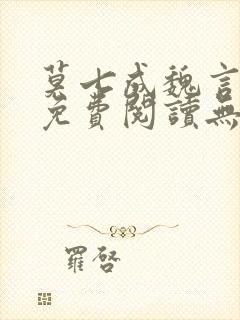 莫七成魏言
免費閱讀無
羅啓